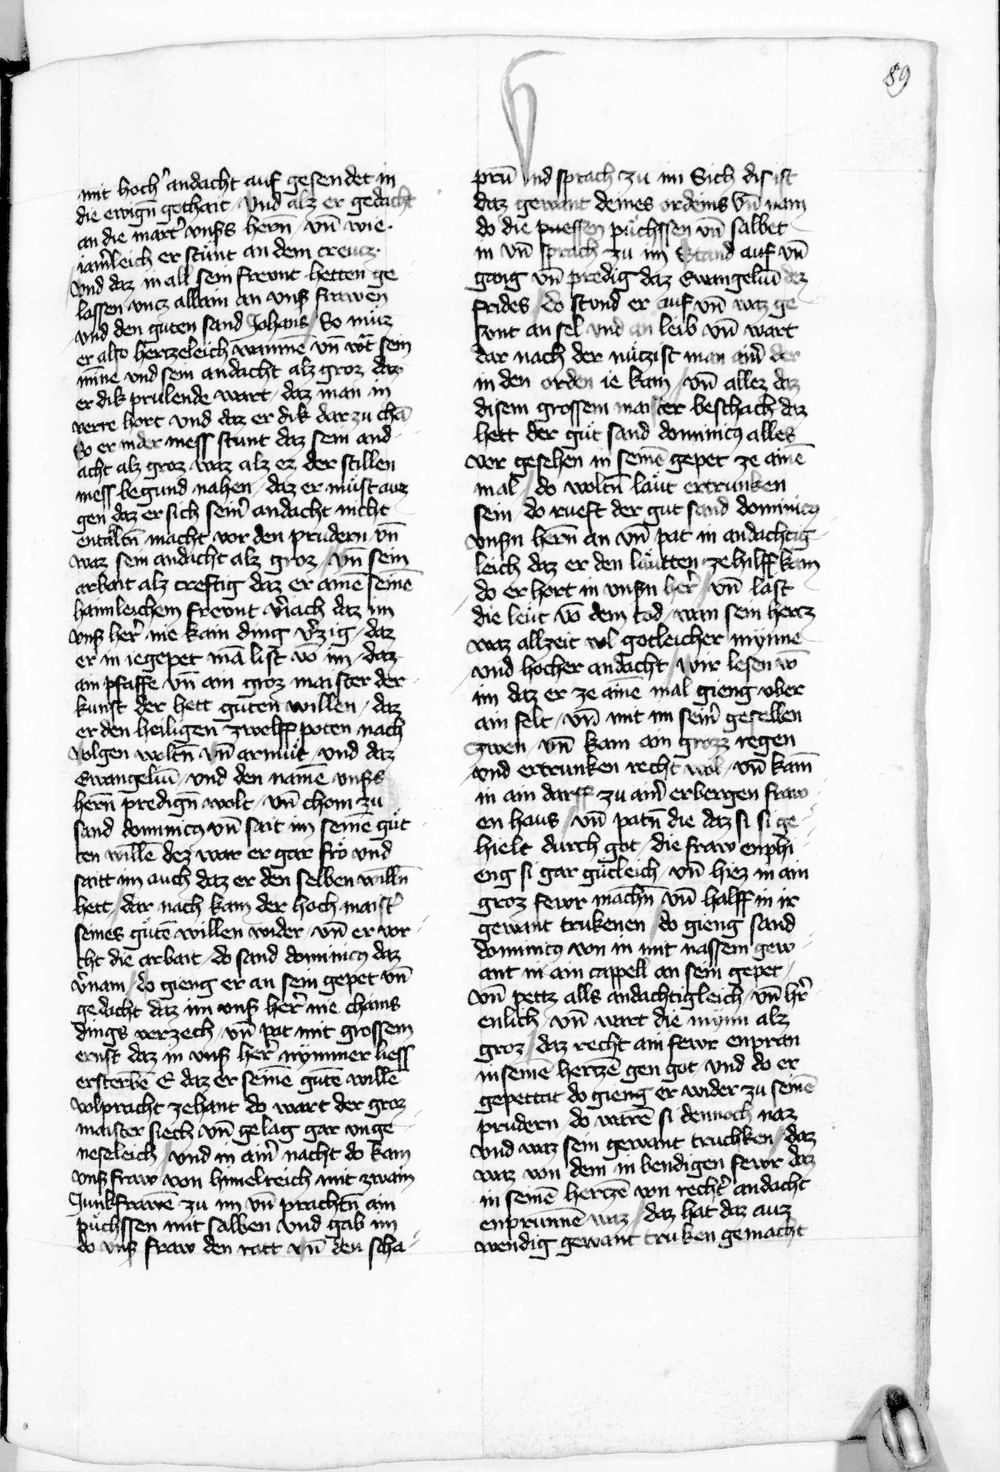 89
mit hoch̕ andacht auf gesendet in
die ewign̄ gothait / Und alz er gedacht
an die mart̕ unsers herñ / Vñ wie
iam̕leich er stuͤnt an dem creucz
Und daz in all sein freunt hetten ge
lassen uncz allain an uns̕ frawen
und den guten sand Johans / So muͤz
er also herczeleich wainnē vñ
mīne und sein andacht alz groz daz
er dik prulende wart / daz man in
verre hort Und daz er dik dar zu chā
So er in der mess stunt daz sein and
acht alz groz waz alz er der stillen
mess begund nahen / daz er muͤst auz
gen daz er sich sein̕ andacht nicht
entaltñ macht vor den prudern Vñ
waz sein andacht alz groz / Vñ sein
arbait alz creftig daz er ainē seinē
haimleichem freunt v̕iach daz im
uns̕ her̕ nie kain ding v̕zig / daz
er in ie gepet mā list vō im / daz
ain pfaffe vñ ain groz maister der
kunst der hett guten willen / daz
er den heiligen zwelff poten nach
volgen woltñ vñ armuͤt / und daz
Ewangeliū / und den namē unsers
herñ predigñ wolt / vñ chom zu
sand dominicus vñ sait im seinē guͤt
ten willē dez war er gar frö und
saitt im auch daz er den selben willñ
hett / dar nach kam der hoch maist̕
seines guͤtē willen wider / vñ er vor
cht die arbait / do sand dominicus daz
v̕nam / do gieng er an sein gepet vñ
gedacht daz im uns̕ her̕ nie chains
dings verzech / vñ pat mit grossem
ernst daz in uns̕ her̕ nymmer liess
ersterbē E daz er seinē gutē willē
volpracht zehant do wart der groz
maister siech vñ gelag gar unge
nesleich / und in ain̕ nacht do kam
uns̕ fraw von himelreich mit zwain
Junkfrawē zu im vñ prachtñ ain
puͤchssen mit salben Und gab im
do uns̕ fraw den ratt vñ den scha
prū Und sprach zu im Sich dis ist
daz gewant deines ordeins Vñ nam
do die puchssen vñ salbet
in vñ sprach zu im Stand auf vñ
gang vñ predig daz Ewangeliū dez
frides / do stund er auf vñ waz ge
sunt an sel und an leib vñ wart
dar nach der nuͤczist man ain̕ der
in den orden ie kam / vñ allez daz
disem grossem maister beschach daz
hett der guͤt sand dominicus alles
vor gesehen in seinē gepet ze ainē
mal / do woltñ laͤut ertrunken
sein / do rueft der gut sand dominicus
unsern herñ an vñ pat in andachtig
leich daz er den laͤutten ze hilff kam
do er hort in unser her̕ / vñ lâst
die leuͤt vō dem tod / wan sein hercz
waz allzeit vol gotleicher mynne
und hocher andacht / wir lesen vō
im daz er ze ainē mal gieng uber
ain felt / vñ mit im sein̕ gesellen
zwen / vñ kam ain grozz regen
und ertrunken recht wol / vñ kam̄
in ain darff zu ain̕ erbergen fraw
en haus / vñ patñ die daz si si ge
hielt durch got / die fraw enphi
eng si gar guͤtleich / vñ hiez in ain
groz fewr machñ vñ halff in ir
gewant trukenen / do gieng sand
dominicus von in mit nassem gew
ant in ain cappell an sein gepet /
vñ pettz alls andachtigleich / vñ hr̕
enlich / vñ wart die mynn alz
groz / daz recht ain fewr enpran
in seinē herczē gen got und do er
gepettat do gieng er wider zu seinē
prudern do warē si dennoch naz
und waz sein gewant truchken / daz
waz von dem inbendigen fewr daz
in seinē herczē von recht̕ andacht
enprunnē waz / daz hat daz auz
wendig gewant truken gemacht